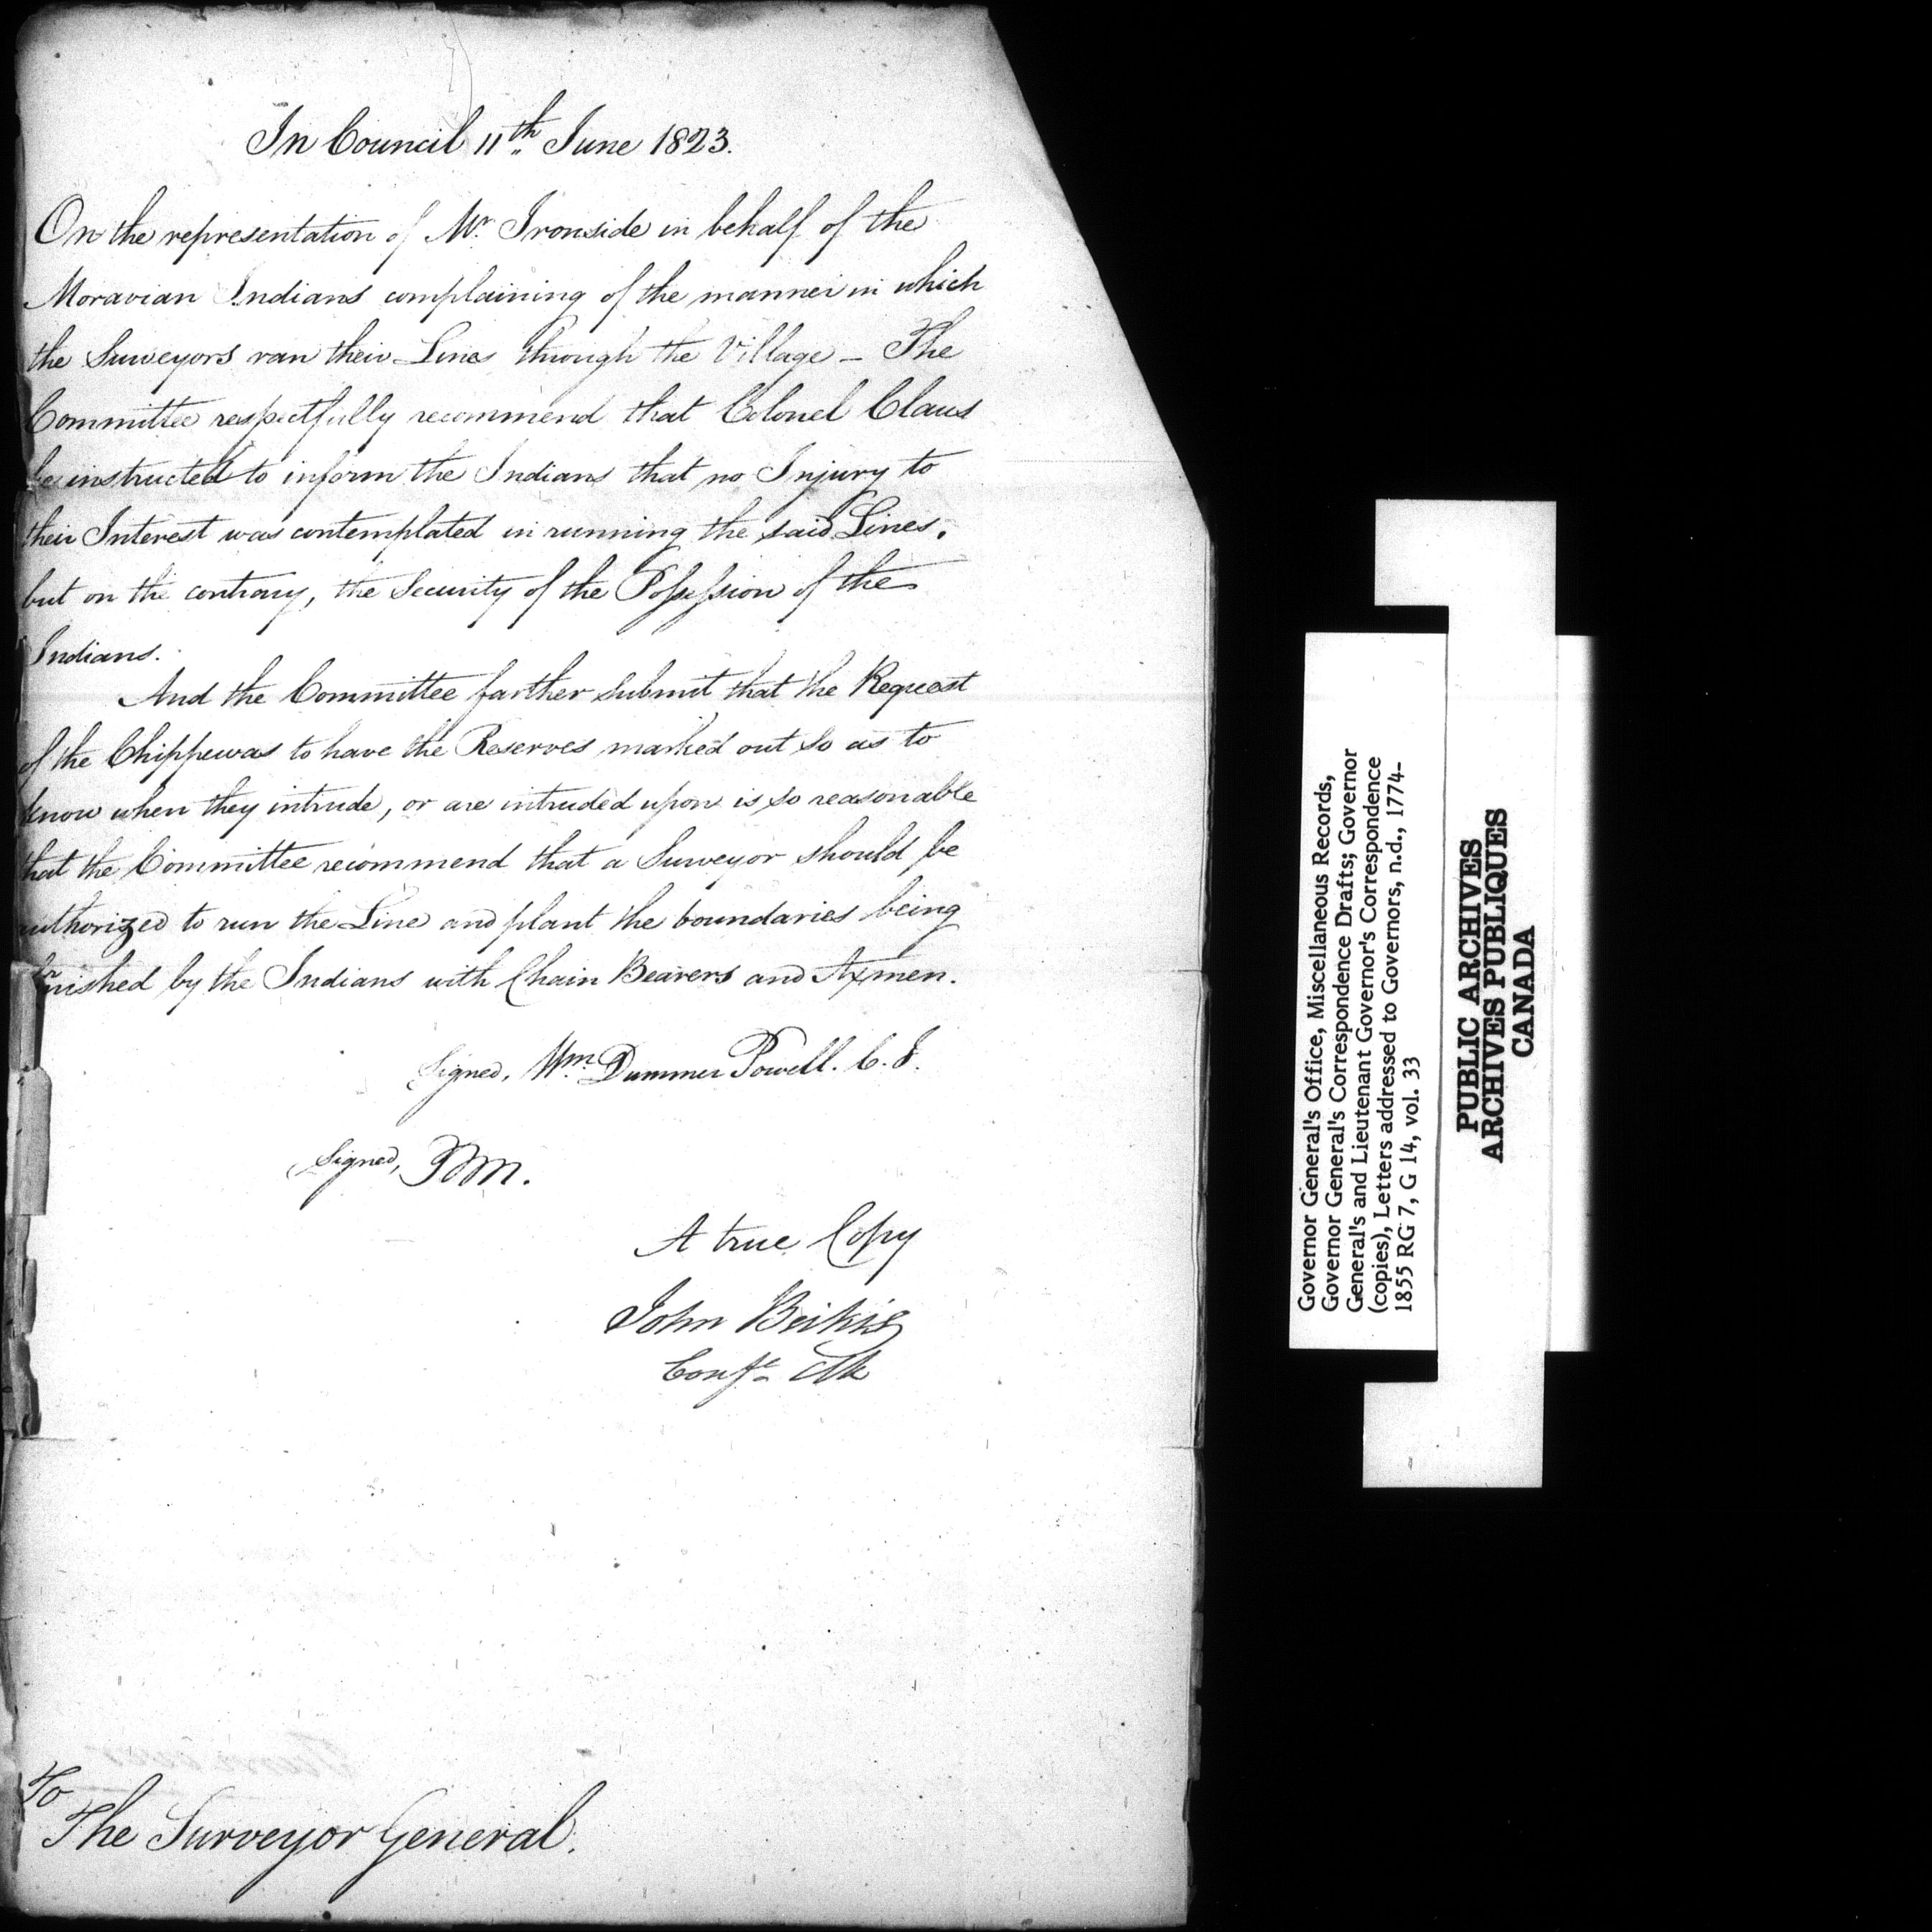 In Council 11th June 1823.
On the representation of Mr. Ironside in behalf of the
Moravian Indians complaining of the manner in which
the Surveyors ran their Lines through the Village – The
Committee respectfully recommend that Colonel Claus
be instructed to inform the Indians that no Injury to
their Interest was contemplated in running the said Lines.
but on the contrary, the Security of the Possession of the
Indians.
And the Committee farther submit that the Request
of the Chippewas to have the Reserves marked out so as to
know when they intrude, or are intruded upon is so reasonable
that the Committee recommend that a Surveyor should be
authorized to run the Line and plant the boundaries being
furnished by the Indians with Chain Bearers and Axmen.
Signed, Wm. Dummer Powell. C. J.
Signed, P.M.
A true Copy
John Beikie
Clk
To
The Surveyor General.
Governor General's Office, Miscellaneous Records,
Governor General's Correspondence Drafts; Governor
General's and Lieutenant Governor's Correspondence
(copies), Letters addressed to Governors, n.d., 1774-
1855 RG 7, G 14, vol. 33
PUBLIC ARCHIVES
ARCHIVES PUBLIQUES
CANADA